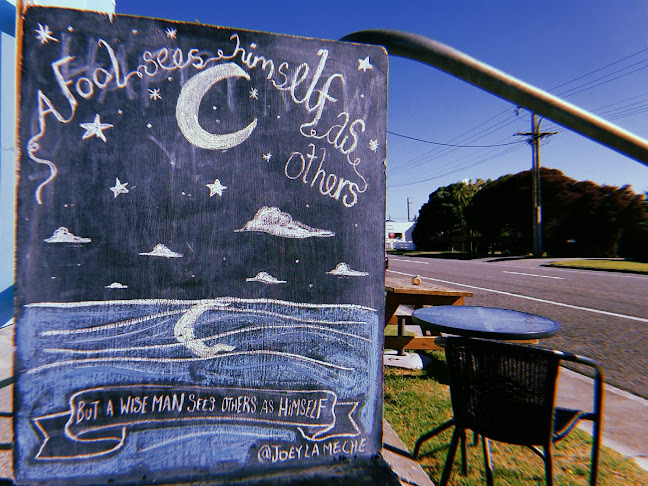 A Fool sees himself as
others
BUT A WISE MAN SEES OTHERS AS HIMSELF
@JOEYLAMECHE